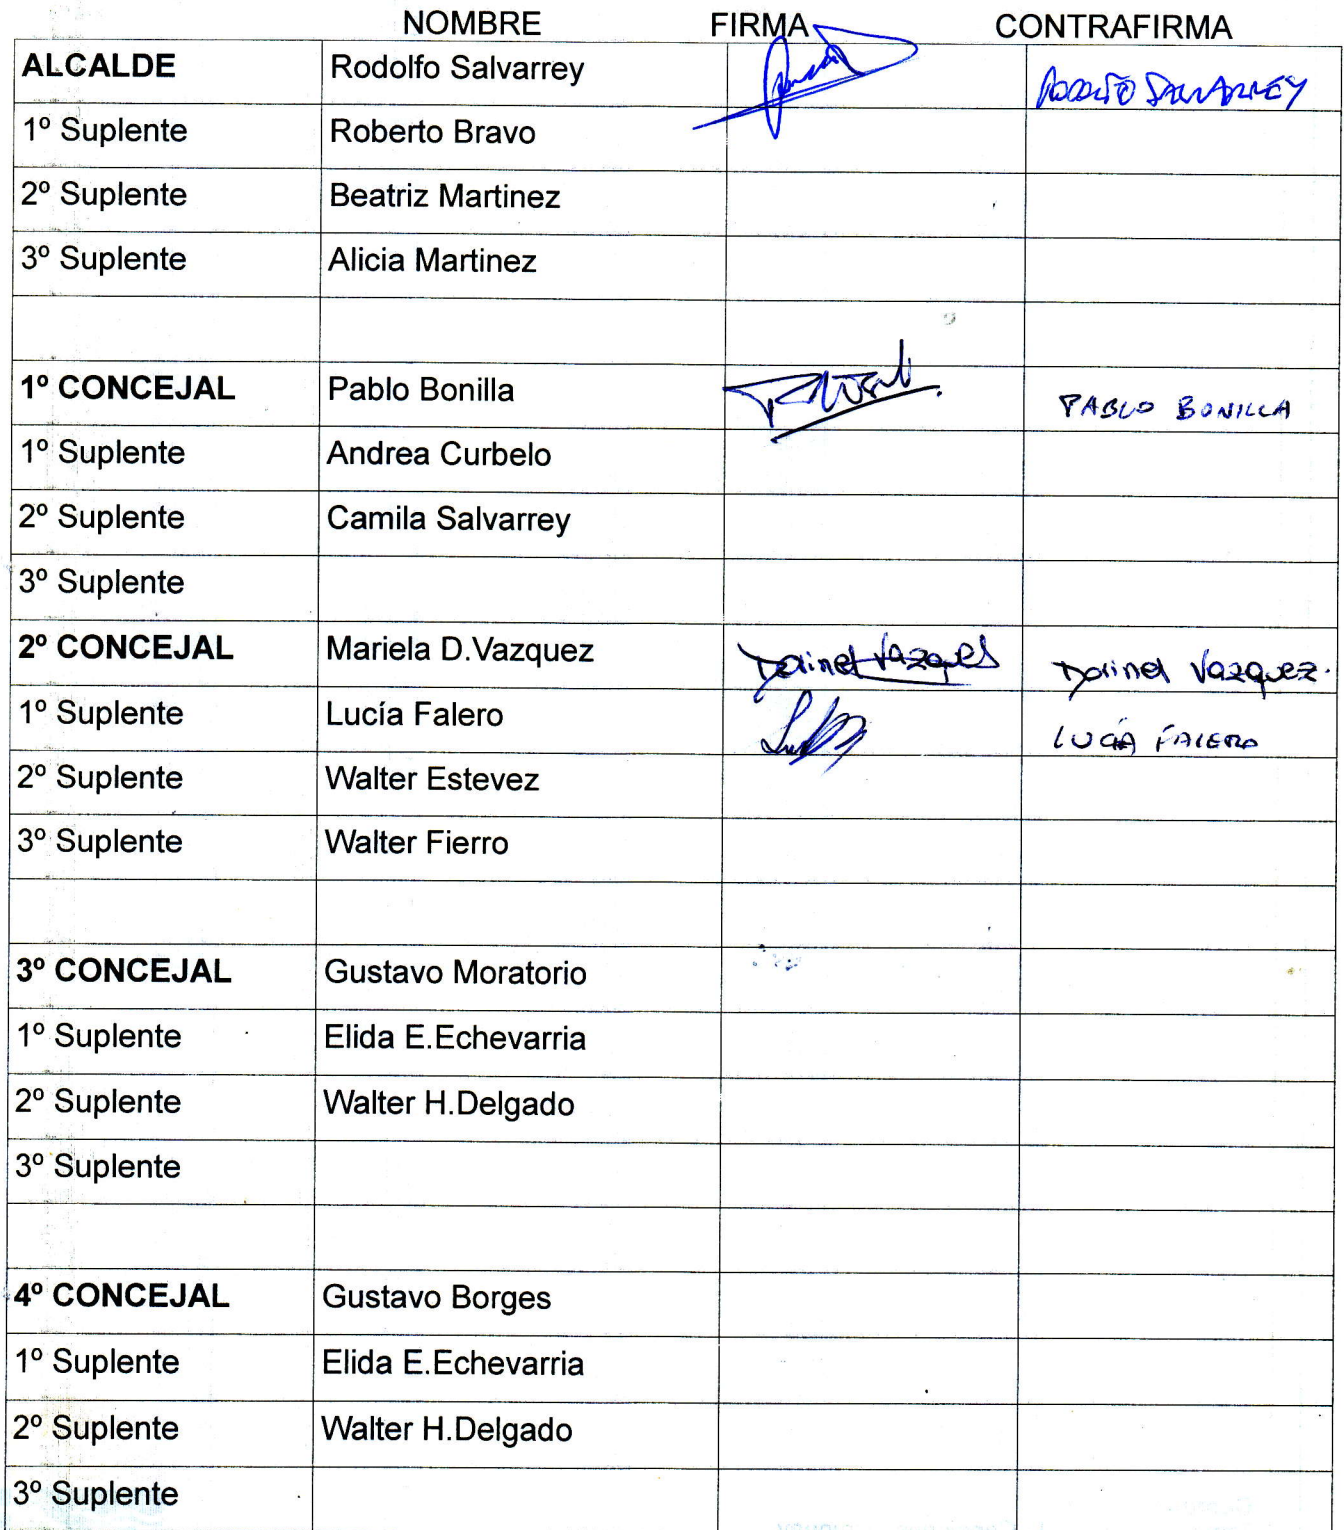 NOMBRE FIRMA CONTRAFIRMA
ALCALDE Rodolfo Salvarrey RODOLFO SALVARREY
1º Suplente Roberto Bravo
2º Suplente Beatriz Martinez
3º Suplente Alicia Martinez
1º CONCEJAL Pablo Bonilla PABLO BONILLA
1º Suplente Andrea Curbelo
2º Suplente Camila Salvarrey
3º Suplente
2º CONCEJAL Mariela D.Vazquez Dorinel Vazquez Dorinel Vazquez.
1º Suplente Lucía Falero LUCÍA FALERO
2º Suplente Walter Estevez
3º Suplente Walter Fierro
3º CONCEJAL Gustavo Moratorio
1º Suplente Elida E.Echevarria
2º Suplente Walter H.Delgado
3º Suplente
4º CONCEJAL Gustavo Borges
1º Suplente Elida E.Echevarria
2º Suplente Walter H.Delgado
3º Suplente